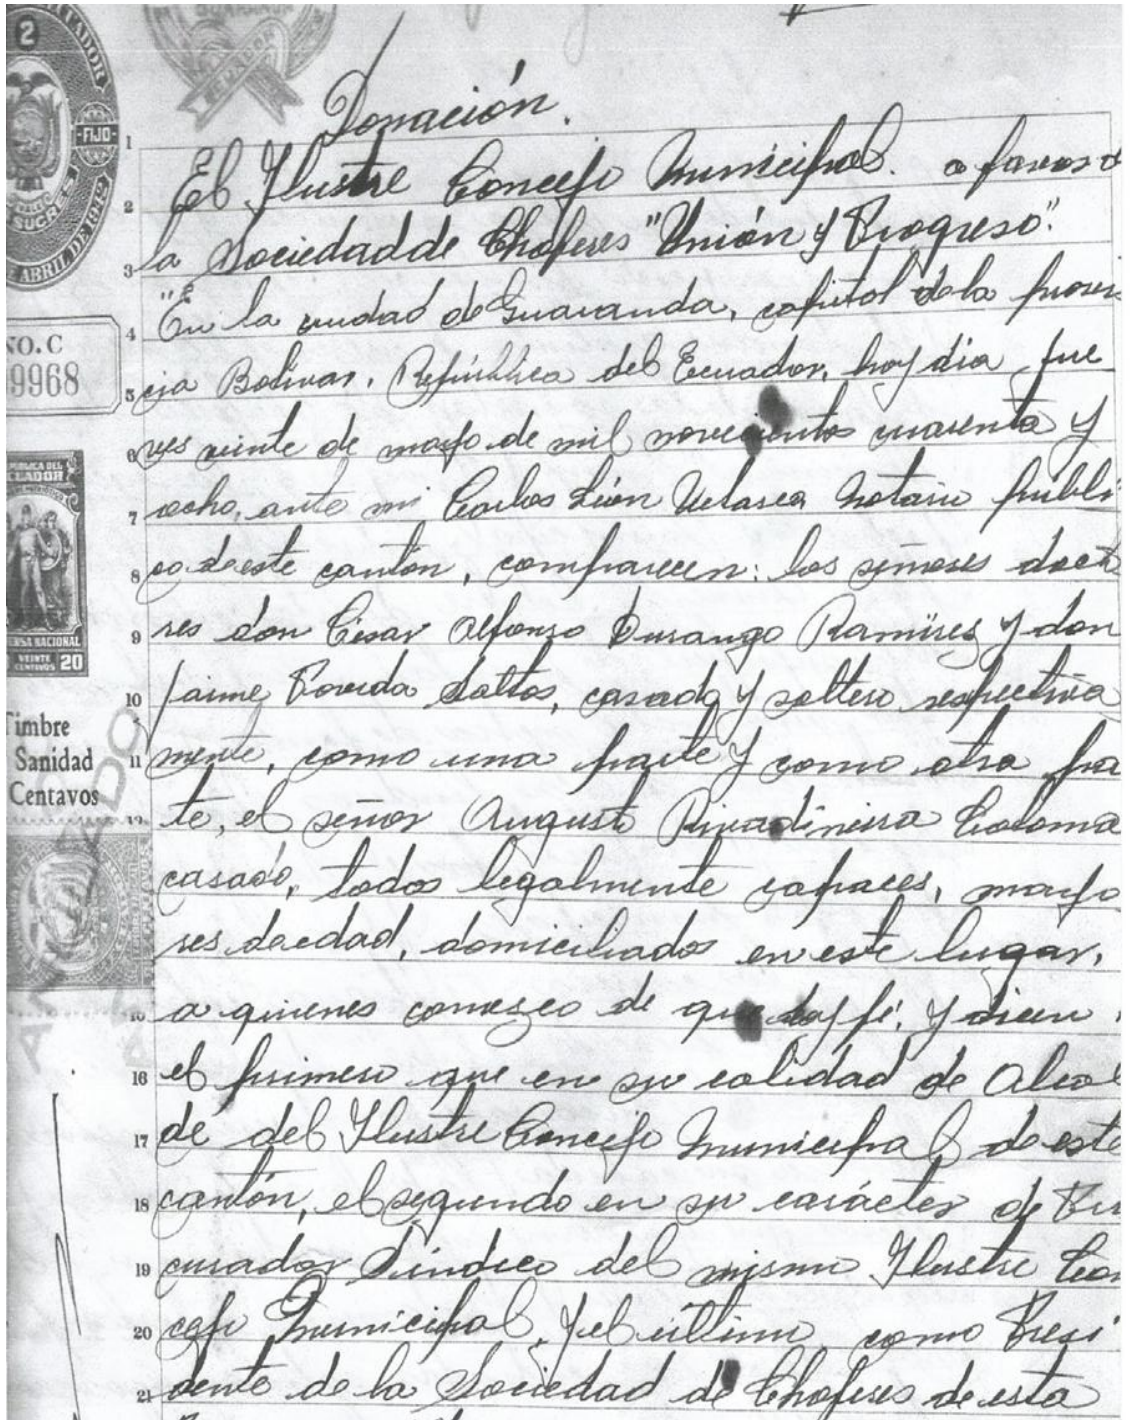 2
FIJO
SUCRES
ABRIL DE 1942
ECUADOR
NO.C
9968
REPUBLICA DEL
ECUADOR
DEFENSA NACIONAL
VEINTE
CENTAVOS 20
Timbre
Sanidad
Centavos
Donación.
1
El Ilustre Concejo Municipal. a favor d
2
la Sociedad de Choferes "Unión y Progreso".
3
"En la ciudad de Guaranda, capital de la provin
4
cia Bolívar, República del Ecuador, hoy día jue
5
ves veinte de mayo de mil novecientos cuarenta y
6
ocho, ante mi Carlos León Velasco Notario públi
7
co de este cantón, comparecen: los señores docto
8
res don César Alfonso Durango Ramírez y don
9
Jaime Poveda Saltos, casado y soltero respectiva
10
mente, como una parte y como otra par
11
te, el señor Augusto Rivadineira Coloma
12
casado, todos legalmente capaces, mayo
res de edad, domiciliados en este lugar,
a quienes conozco de que doy fé. y dicen
15
el primero que en su calidad de Alcal
16
de del Ilustre Concejo Municipal de este
17
cantón, el segundo en su carácter de Pro
18
curador Síndico del mismo Ilustre Con
19
cejo Municipal, y el último como Presi
20
dente de la Sociedad de Choferes de esta
21